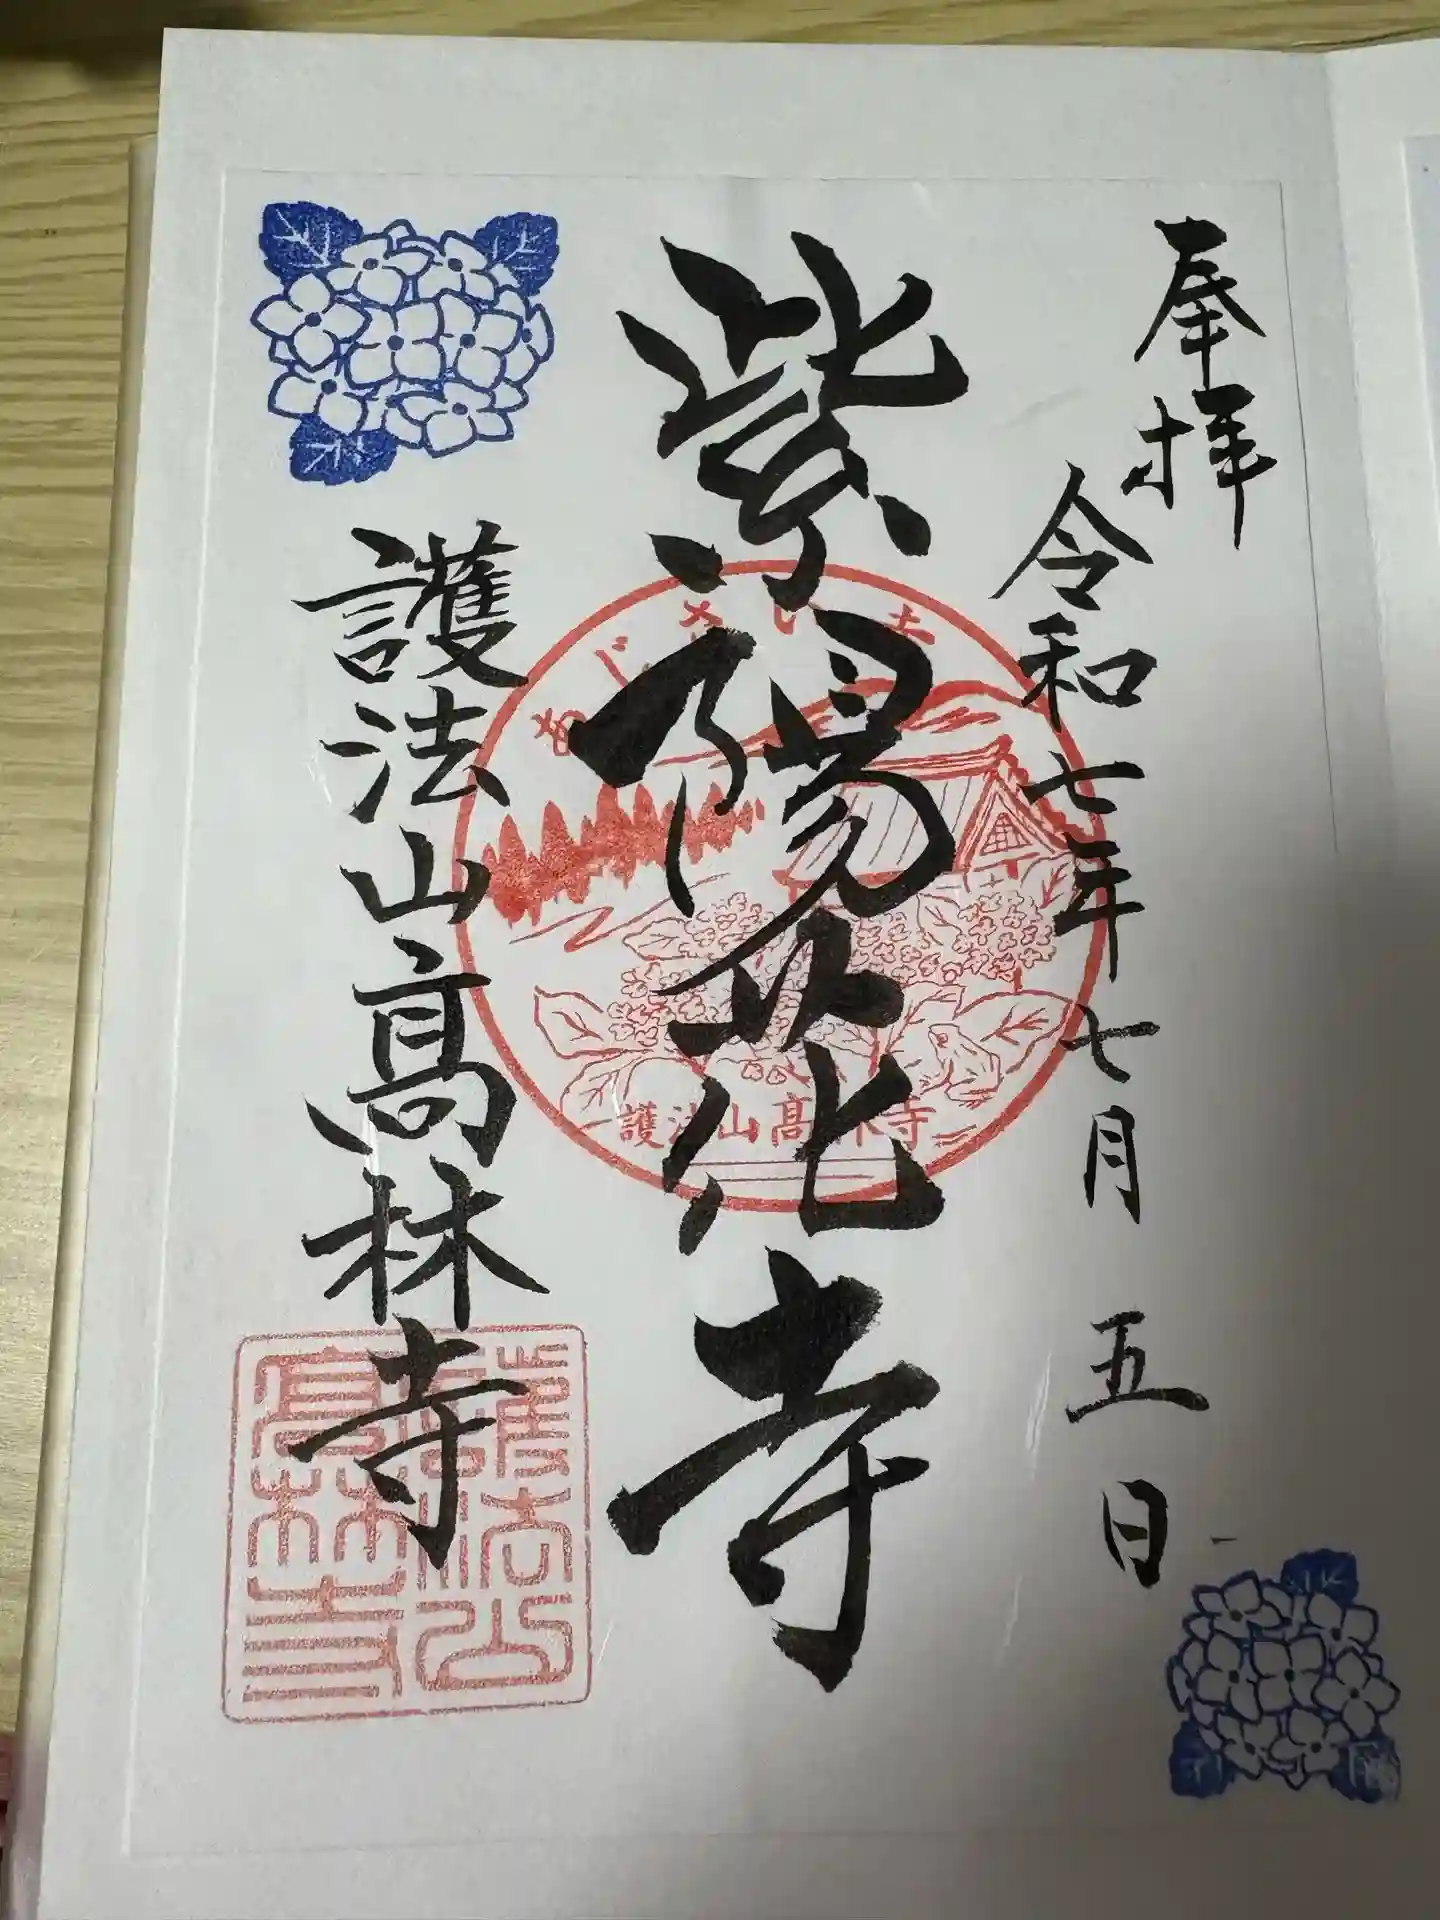 奉拝
令和七年七月五日
紫陽花寺
あじさい寺
護法山髙林寺
護法山髙林寺
護法山高林寺